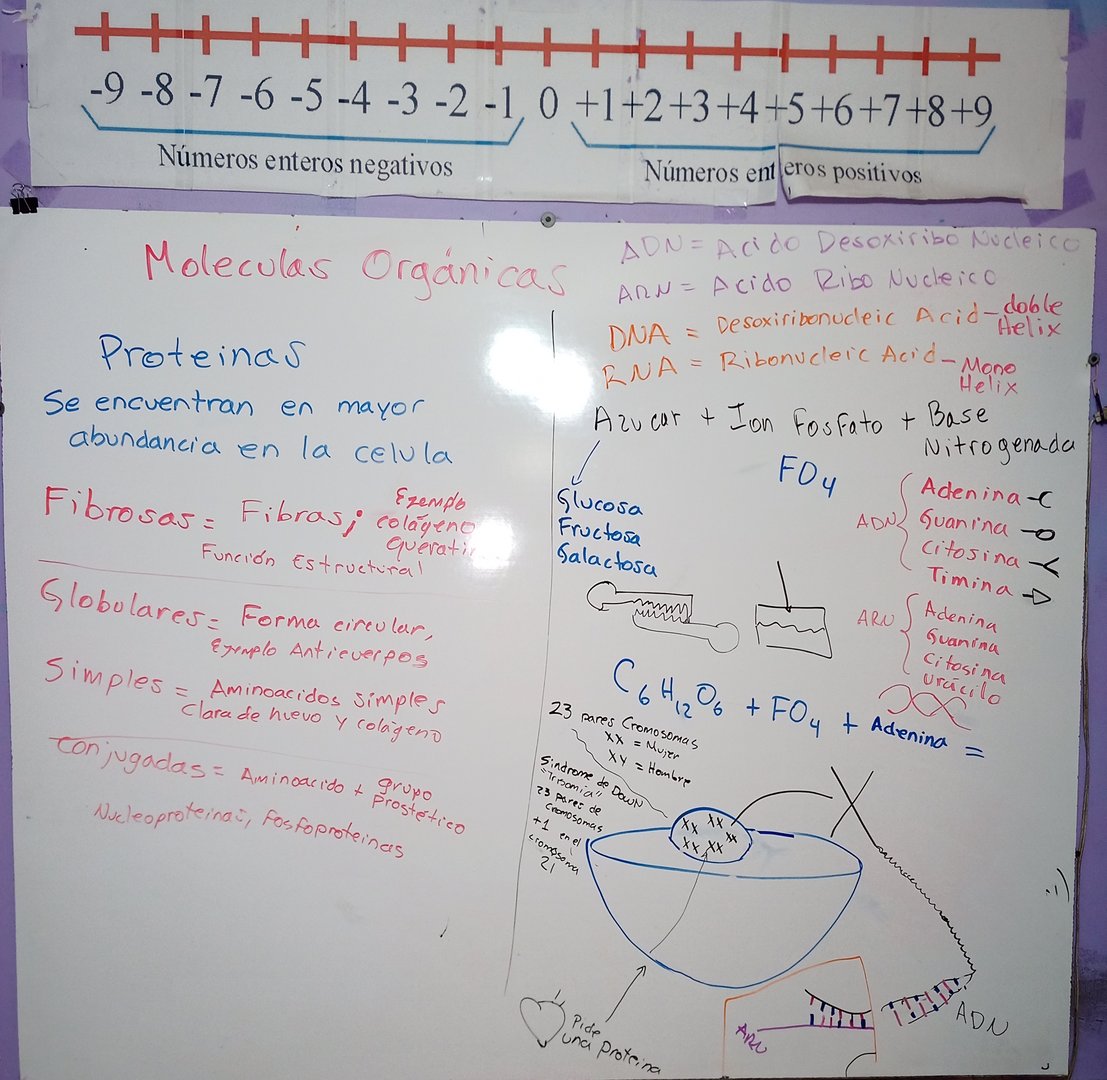 -9 -8 -7 -6 -5 -4 -3 -2 -1 0 +1 +2 +3 +4 +5 +6 +7 +8 +9
Números enteros negativos
Números enteros positivos
Moleculas Orgánicas
Proteinas
Se encuentran en mayor
abundancia en la celula
Fibrosas = Fibras; Ejemplo
colágeno
querati
Función Estructural
Globulares = Forma circular,
Ejemplo Anticuerpos
Simples = Aminoacidos simples
Clara de huevo y colágeno
Conjugadas = Aminoacido + grupo
Prostetico
Nucleoproteinas, Fosfoproteinas
ADN = Acido Desoxiribo Nucleico
ARN = Acido Ribo Nucleico
DNA = Desoxiribonucleic Acid - doble
Helix
RNA = Ribonucleic Acid - Mono
Helix
Azucar + Ion Fosfato + Base
Nitrogenada
Glucosa
Fructosa
Galactosa
FO4
ADN
Adenina
Guanina
Citosina
Timina
ARN
Adenina
Guanina
Citosina
Uracilo
C6H12O6 + FO4 + Adenina =
23 pares Cromosomas
XX = Mujer
XY = Hombre
Sindrome de Down
"Trisomia"
23 pares de
cromosomas
+1 en el
cromosoma
21
XX XX
XX
XX XX
Pide
una Proteina
ARN
ADN